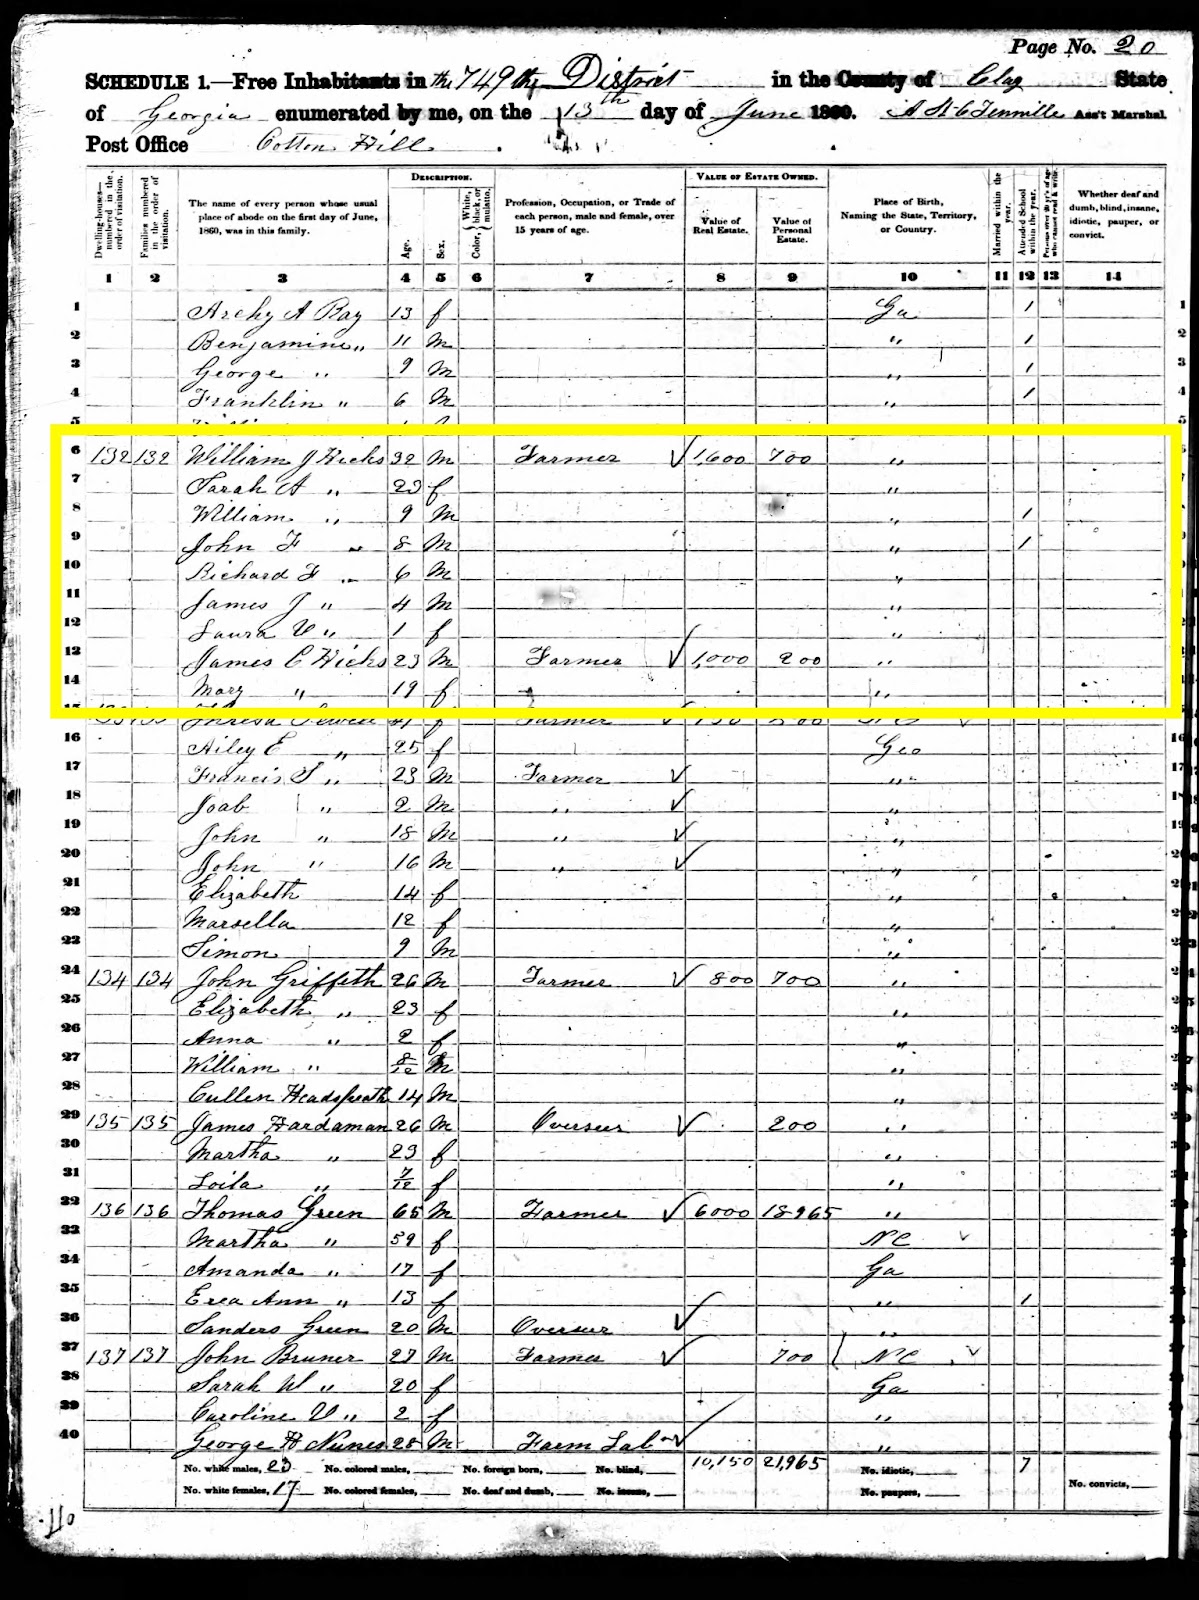 Page No. 20
SCHEDULE 1.—Free Inhabitants in the 749th District in the County of Clay State
of Georgia enumerated by me, on the 13th day of June 1860. Ass't Marshal.
Post Office Cotton Hill
Dwelling-houses—numbered in the order of visitation.
Families numbered in the order of visitation.
The name of every person whose usual place of abode on the first day of June, 1860, was in this family.
DESCRIPTION.
Age.
Sex.
Color, White, black, or mulatto.
Profession, Occupation, or Trade of each person, male and female, over 15 years of age.
VALUE OF ESTATE OWNED.
Value of Real Estate.
Value of Personal Estate.
Place of Birth, Naming the State, Territory, or Country.
Married within the year.
Attended School within the year.
Persons over 20 y'rs of age who cannot read & write.
Whether deaf and dumb, blind, insane, idiotic, pauper, or convict.
1 2 3 4 5 6 7 8 9 10 11 12 13 14
1 Archy A Ray 13 f Ga 1
2 Benjamine " 11 m " 1
3 George " 9 m " 1
4 Franklin " 6 m " 1
5
6 132 132 William J Hicks 32 m Farmer 1,600 700 "
7 Sarah A " 23 f "
8 William " 9 m " 1
9 John F " 8 m " 1
10 Richard F " 6 m "
11 James J " 4 m "
12 Laura V " 1 f "
13 James C Hicks 23 m Farmer 1,000 200 "
14 Mary " 19 f "
15 Farmer
16 Ailey E " 25 f Geo
17 Francis S " 23 m Farmer "
18 Joab " 2 m " "
19 John " 18 m " "
20 John " 16 m " "
21 Elizabeth 14 f "
22 Marsella 12 f "
23 Simon 9 m "
24 134 134 John Griffeth 26 m Farmer 800 700 "
25 Elizabeth " 23 f "
26 Anna " 2 f "
27 William " 8/12 m "
28 Cullen Headspeath 14 m "
29 135 135 James Hardaman 26 m Overseer 200 "
30 Martha " 23 f "
31 Loila " 7/12 f "
32 136 136 Thomas Green 65 m Farmer 6000 18965 "
33 Martha " 59 f NC
34 Amanda " 17 f Ga
35 Erea Ann " 13 f " 1
36 Sanders Green 20 m Overseer "
37 137 137 John Bruner 27 m Farmer 700 NC
38 Sarah W " 20 f Ga
39 Caroline V " 2 f "
40 George H Nunes 28 m Farm Lab "
No. white males, 23 No. colored males, No. foreign born, No. blind, 10,150 21,965 No. idiotic, 7
No. white females, 17 No. colored females, No. deaf and dumb, No. insane, No. paupers, No. convicts,
110